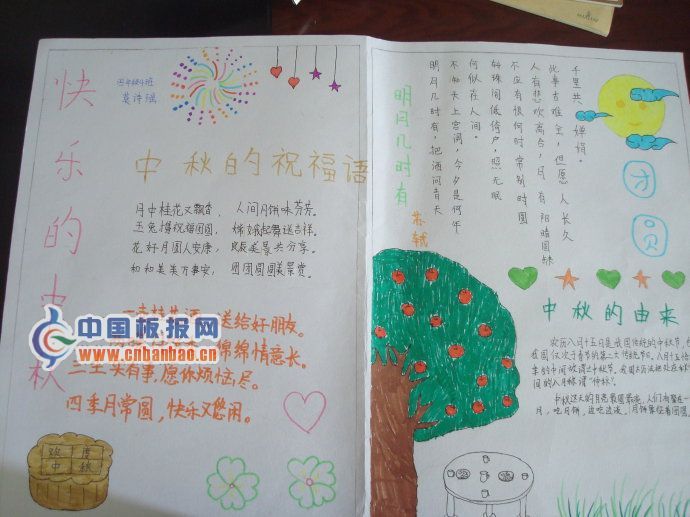 快乐的中秋
四年级4班
中秋的祝福语
月中桂花又飘香，人间月饼味芬芳。
玉兔捧祝福团圆，嫦娥起舞送吉祥。
花好月圆人安康，良辰美景共分享。
和和美美万事安，团团圆圆美景赏。
送给好朋友。
绵绵情意长。
有事，愿你烦恼尽。
四季月常圆，快乐又悠闲。
中国板报网
www.cnbanbao.cn
欢度
中秋
明月几时有
苏轼
明月几时有，把酒问青天
不知天上宫阙，今夕是何年
何似在人间。
转珠阁低倚户，照无眠
不应有恨何时常别时圆
人有悲欢离合，月有阴晴圆缺
此事古难全，但愿人长久
千里共婵娟。
团圆
中秋的由来
农历八月十五日是我国传统的中秋节，
我国仅次于春节的第二大传统节日。八月十五
间的八月称谓"仲秋"。
中秋这天的月亮最圆最亮，人们有聚在一
月，吃月饼，